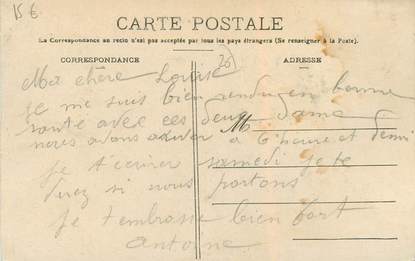 15 €
CARTE POSTALE
La Correspondance au recto n'est pas acceptée par tous les pays étrangers (Se renseigner à la Poste).
CORRESPONDANCE
ADRESSE
26
Ma chère Louise
je me suis bien rendu en bonne
santé avec ces deux dame
M
nous avons à 6 heure et demi
je t'écrirer samedi je te
direz si nous partons
je t'embrasse bien fort
Antoine